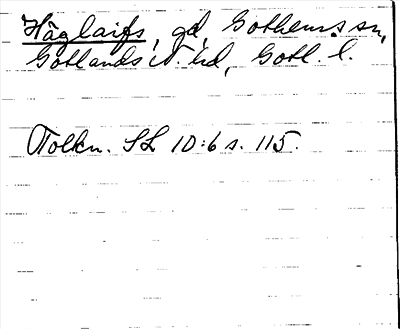 Häglaifs, gd, Gothems sn,
Gotlands N. hd, Gotl. l.
Tolkn. SL 10:6 s. 115.